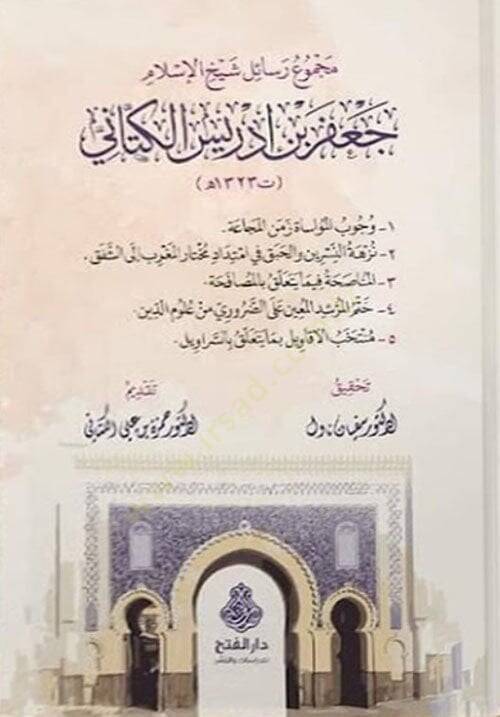 مجموع رسائل شيخ الإسلام
جعفر بن إدريس الكتاني
(ت ١٣٢٣هـ)
١- وجوب المواساة زمن المجاعة.
٢- نزهة النسرين والحبق في امتداد مختار المغرب إلى الشفق.
٣- المناصحة فيما يتعلق بالمصافحة.
٤- ختم المرشد المعين على الضروري من علوم الدين.
٥- منتخب الأقاويل بما يتعلق بالسراويل.
تحقيق
الدكتور سفيان ناول
تقديم
الدكتور حمزة بن علي الكتاني
دار الفتح
للدراسات والنشر